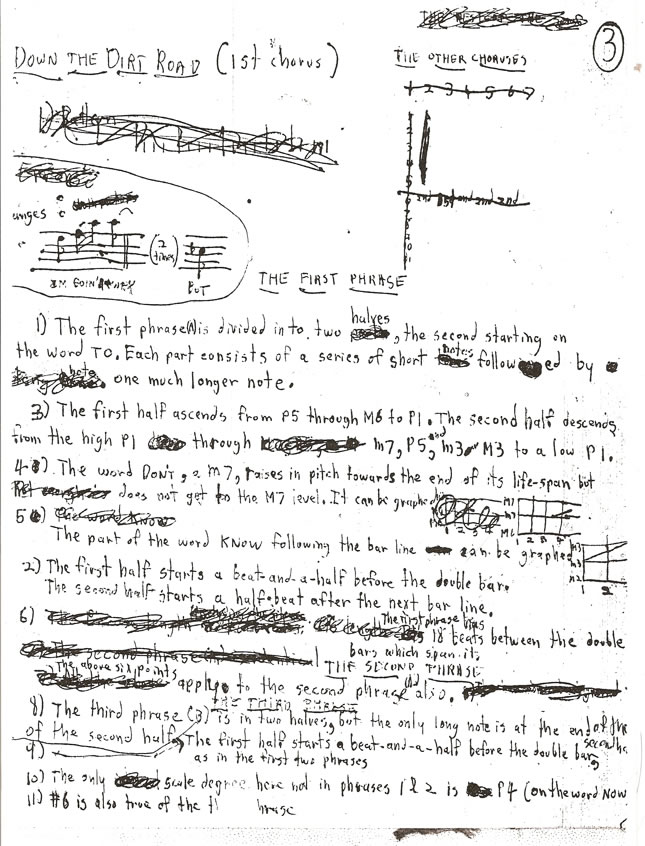 3
DOWN THE DIRT ROAD (1st chorus)
THE OTHER CHORUSES
1 2 3 4 5 6 7
anges
(2 times)
I'M GOIN' AWAY
BUT
THE FIRST PHRASE
1) The first phrase is divided into two halves, the second starting on
the word TO. Each part consists of a series of short notes followed by
one much longer note.
3) The first half ascends from P5 through M6 to P1. The second half descends
from the high P1 through m7, P5, and m3 or M3 to a low P1.
4) The word DON'T, a m7, raises in pitch towards the end of its life-span but
does not get to the M7 level. It can be graphed
M7
m7
M6
1 2 3 4
5)
The part of the word KNOW following the bar line can be graphed
M3
m3
M2
1 2
2) The first half starts a beat-and-a-half before the double bar.
The second half starts a half-beat after the next bar line.
6) The first phrase has 18 beats between the double
bars which span it.
THE SECOND PHRASE
The above six points
apply to the second phrase also.
THE THIRD PHRASE
8) The third phrase (3) is in two halves, but the only long note is at the end of the
of the second half.
9) The first half starts a beat-and-a-half before the double bar,
as in the first two phrases
10) The only scale degree here not in phrases 1 & 2 is P4 (on the word NOW
11) #6 is also true of the hrase